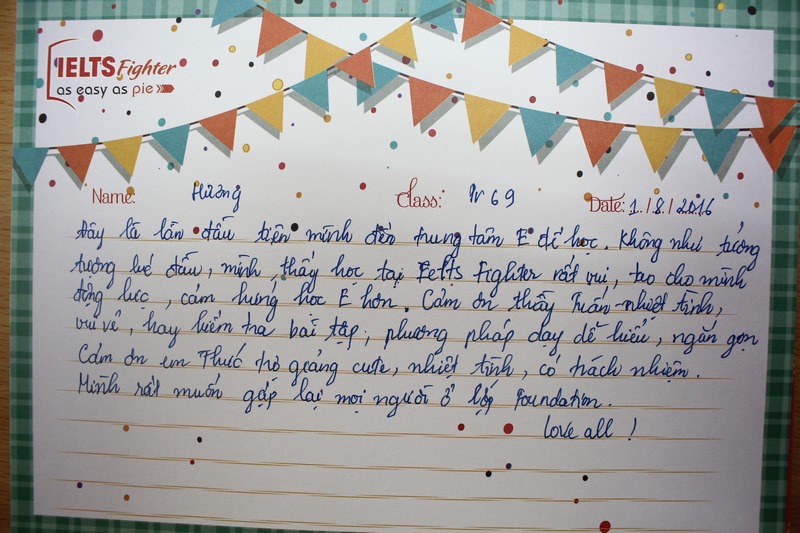 IELTS Fighter
as easy as pie
Name: Hương Class: Pr 69 Date: 1/8/2016
Đây là lần đầu tiên mình đến trung tâm E để học. Không như tưởng
tượng lúc đầu, mình thấy học tại Ielts Fighter rất vui, tạo cho mình
động lực, cảm hứng học E hơn. Cảm ơn thầy Tuấn nhiệt tình,
vui vẻ, hay kiểm tra bài tập, phương pháp dạy dễ hiểu, ngắn gọn
Cảm ơn em Thức trợ giảng cute, nhiệt tình, có trách nhiệm.
Mình rất muốn gặp lại mọi người ở lớp Foundation.
Love all !